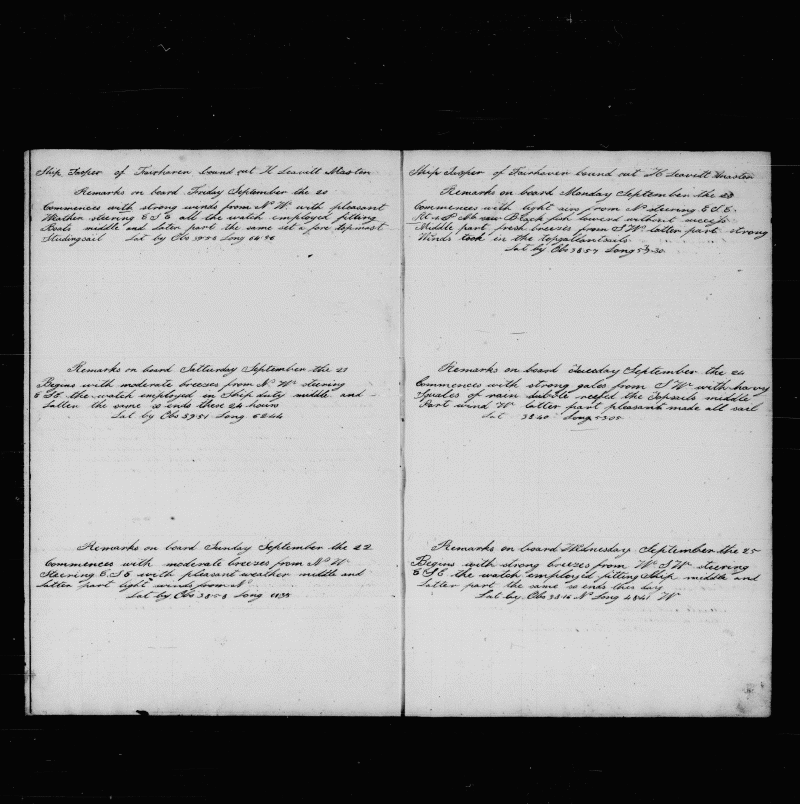 Ship Jasper of Fairhaven bound out H Leavitt Master
Remarks on board Friday September the 20
Commences with strong winds from N. W. with pleasant
Weather steering E S E all the watch employed fitting
Boats middle and later part the same set a fore topmast
Studingsail Lat by Obs Long
Remarks on board Satturday September the 21
Begins with moderate breezes from N. W. steering
E S E the watch employed in Ship duty middle and
Latter the same so ends these 24 hours
Lat by Obs 39 51 Long 62 44
Remarks on board Sunday September the 22
Commences with moderate breezes from N. W.
Steering E. S E with pleasant weather middle and
Latter part light winds from N.
Lat by Obs 38 58 Long
Ship Jasper of Fairhaven bound out H. Leavitt Master
Remarks on board Monday September the 23
Commences with light airs from N. steering E S E.
At 4 P M saw Black fish lowerd without success
Middle part fresh breezes from S W. latter part strong
Winds took in the topgallantsails
Lat by Obs 38 57 Long
Remarks on board Tuesday September the 24
Commences with strong gales from S W. with heavy
Squales of rain double reefed the Topsails middle
Part wind W. latter part pleasant made all sail
Lat 38 40 Long 53 05
Remarks on board Wednesday September the 25
Begins with strong breezes from W. S W. steering
E S E the watch employed fitting Ship middle and
Latter part the same so ends this day
Lat by Obs 38 16 N. Long 48 41 W